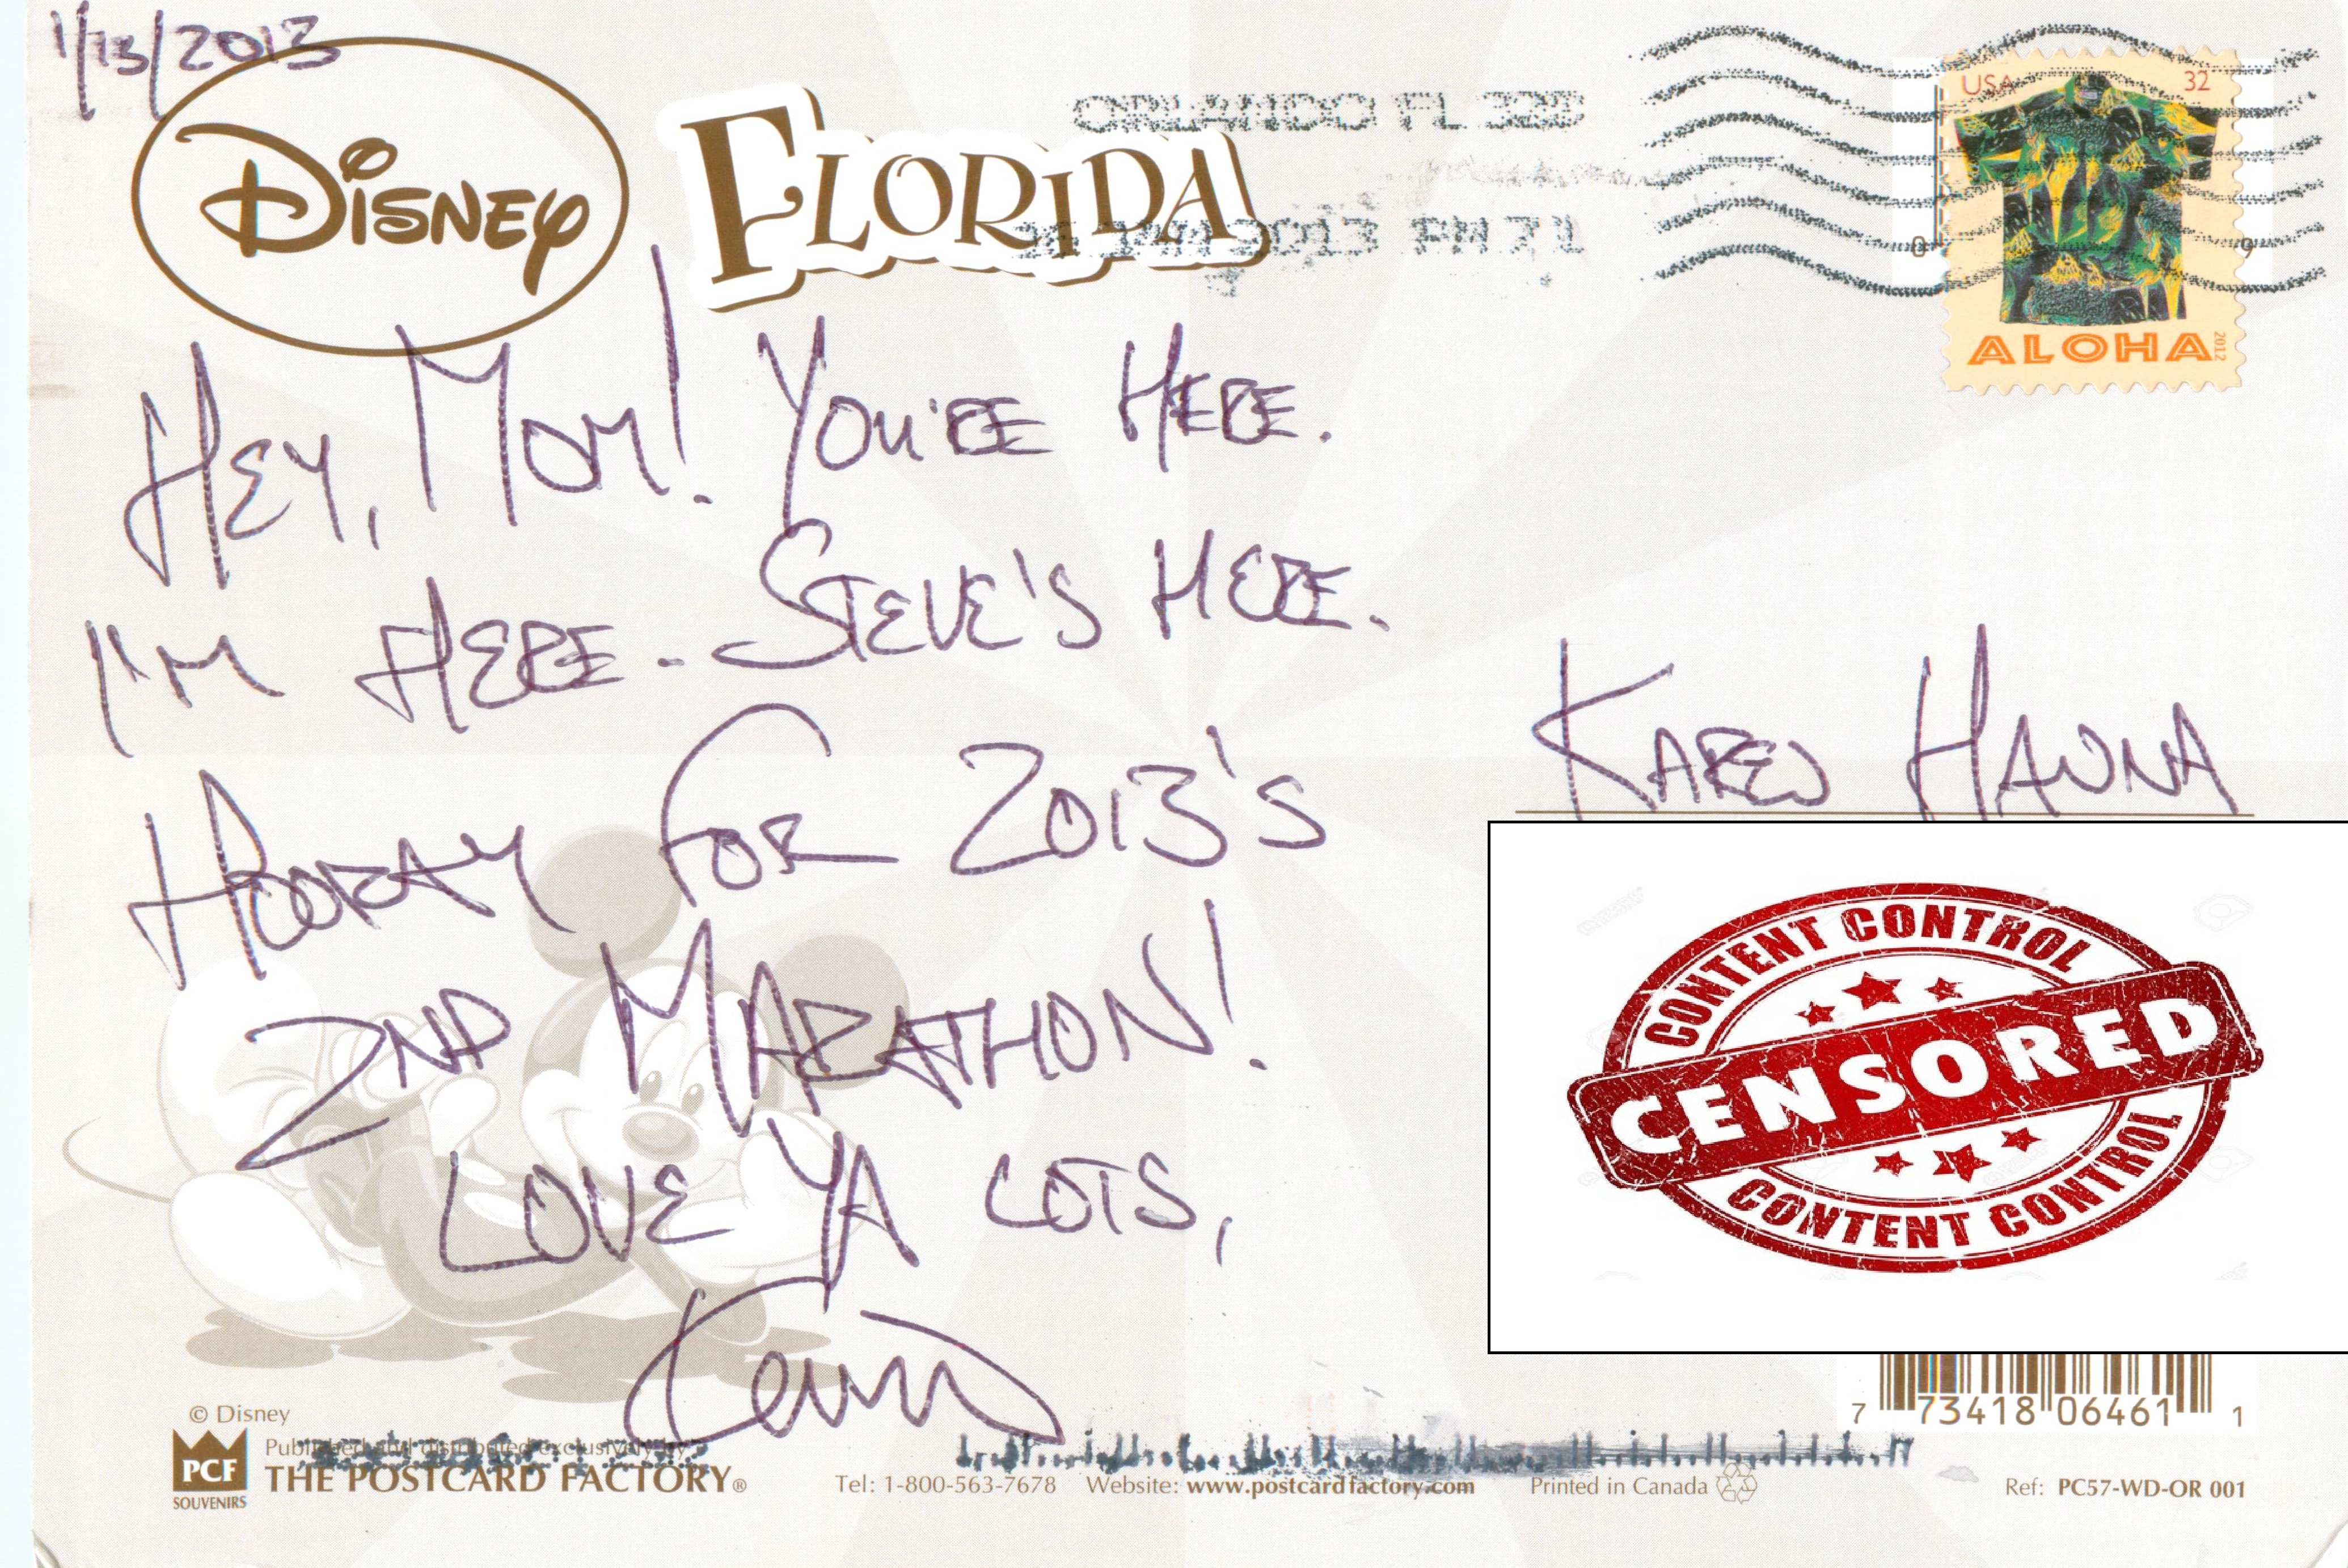 1/13/2013
DISNEY
FLORIDA
ORLANDO FL 328
2013 PM
USA 32
ALOHA
2012
HEY, MOM! YOU'RE HERE.
I'M HERE. STEVE'S HERE.
HOORAY FOR 2013'S
2ND MARATHON!
LOVE YA LOTS,
KAREN HANNA
CONTENT CONTROL
CENSORED
CONTENT CONTROL
7 73418 06461 1
© Disney
Published and distributed exclusively by
PCF
SOUVENIRS
THE POSTCARD FACTORY®
Tel: 1-800-563-7678 Website: www.postcardfactory.com Printed in Canada Ref: PC57-WD-OR 001